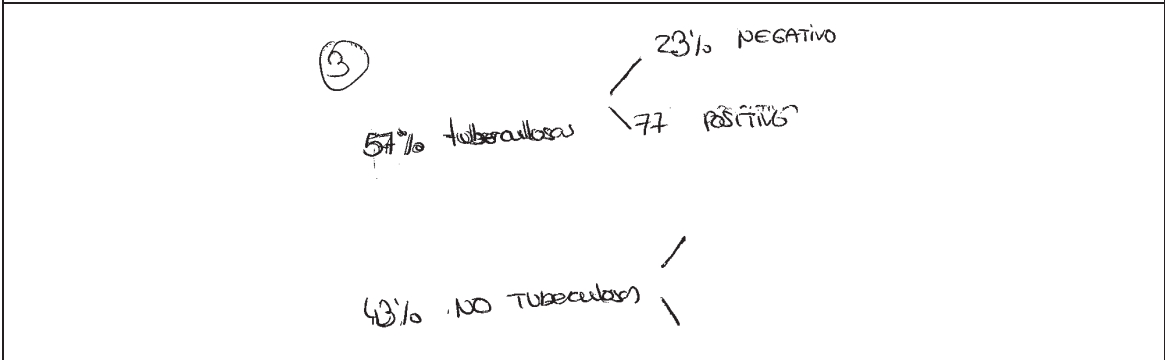 3
23% NEGATIVO
57% tuberculosos
77 POSITIVO
43% NO TUBERCULOSOS